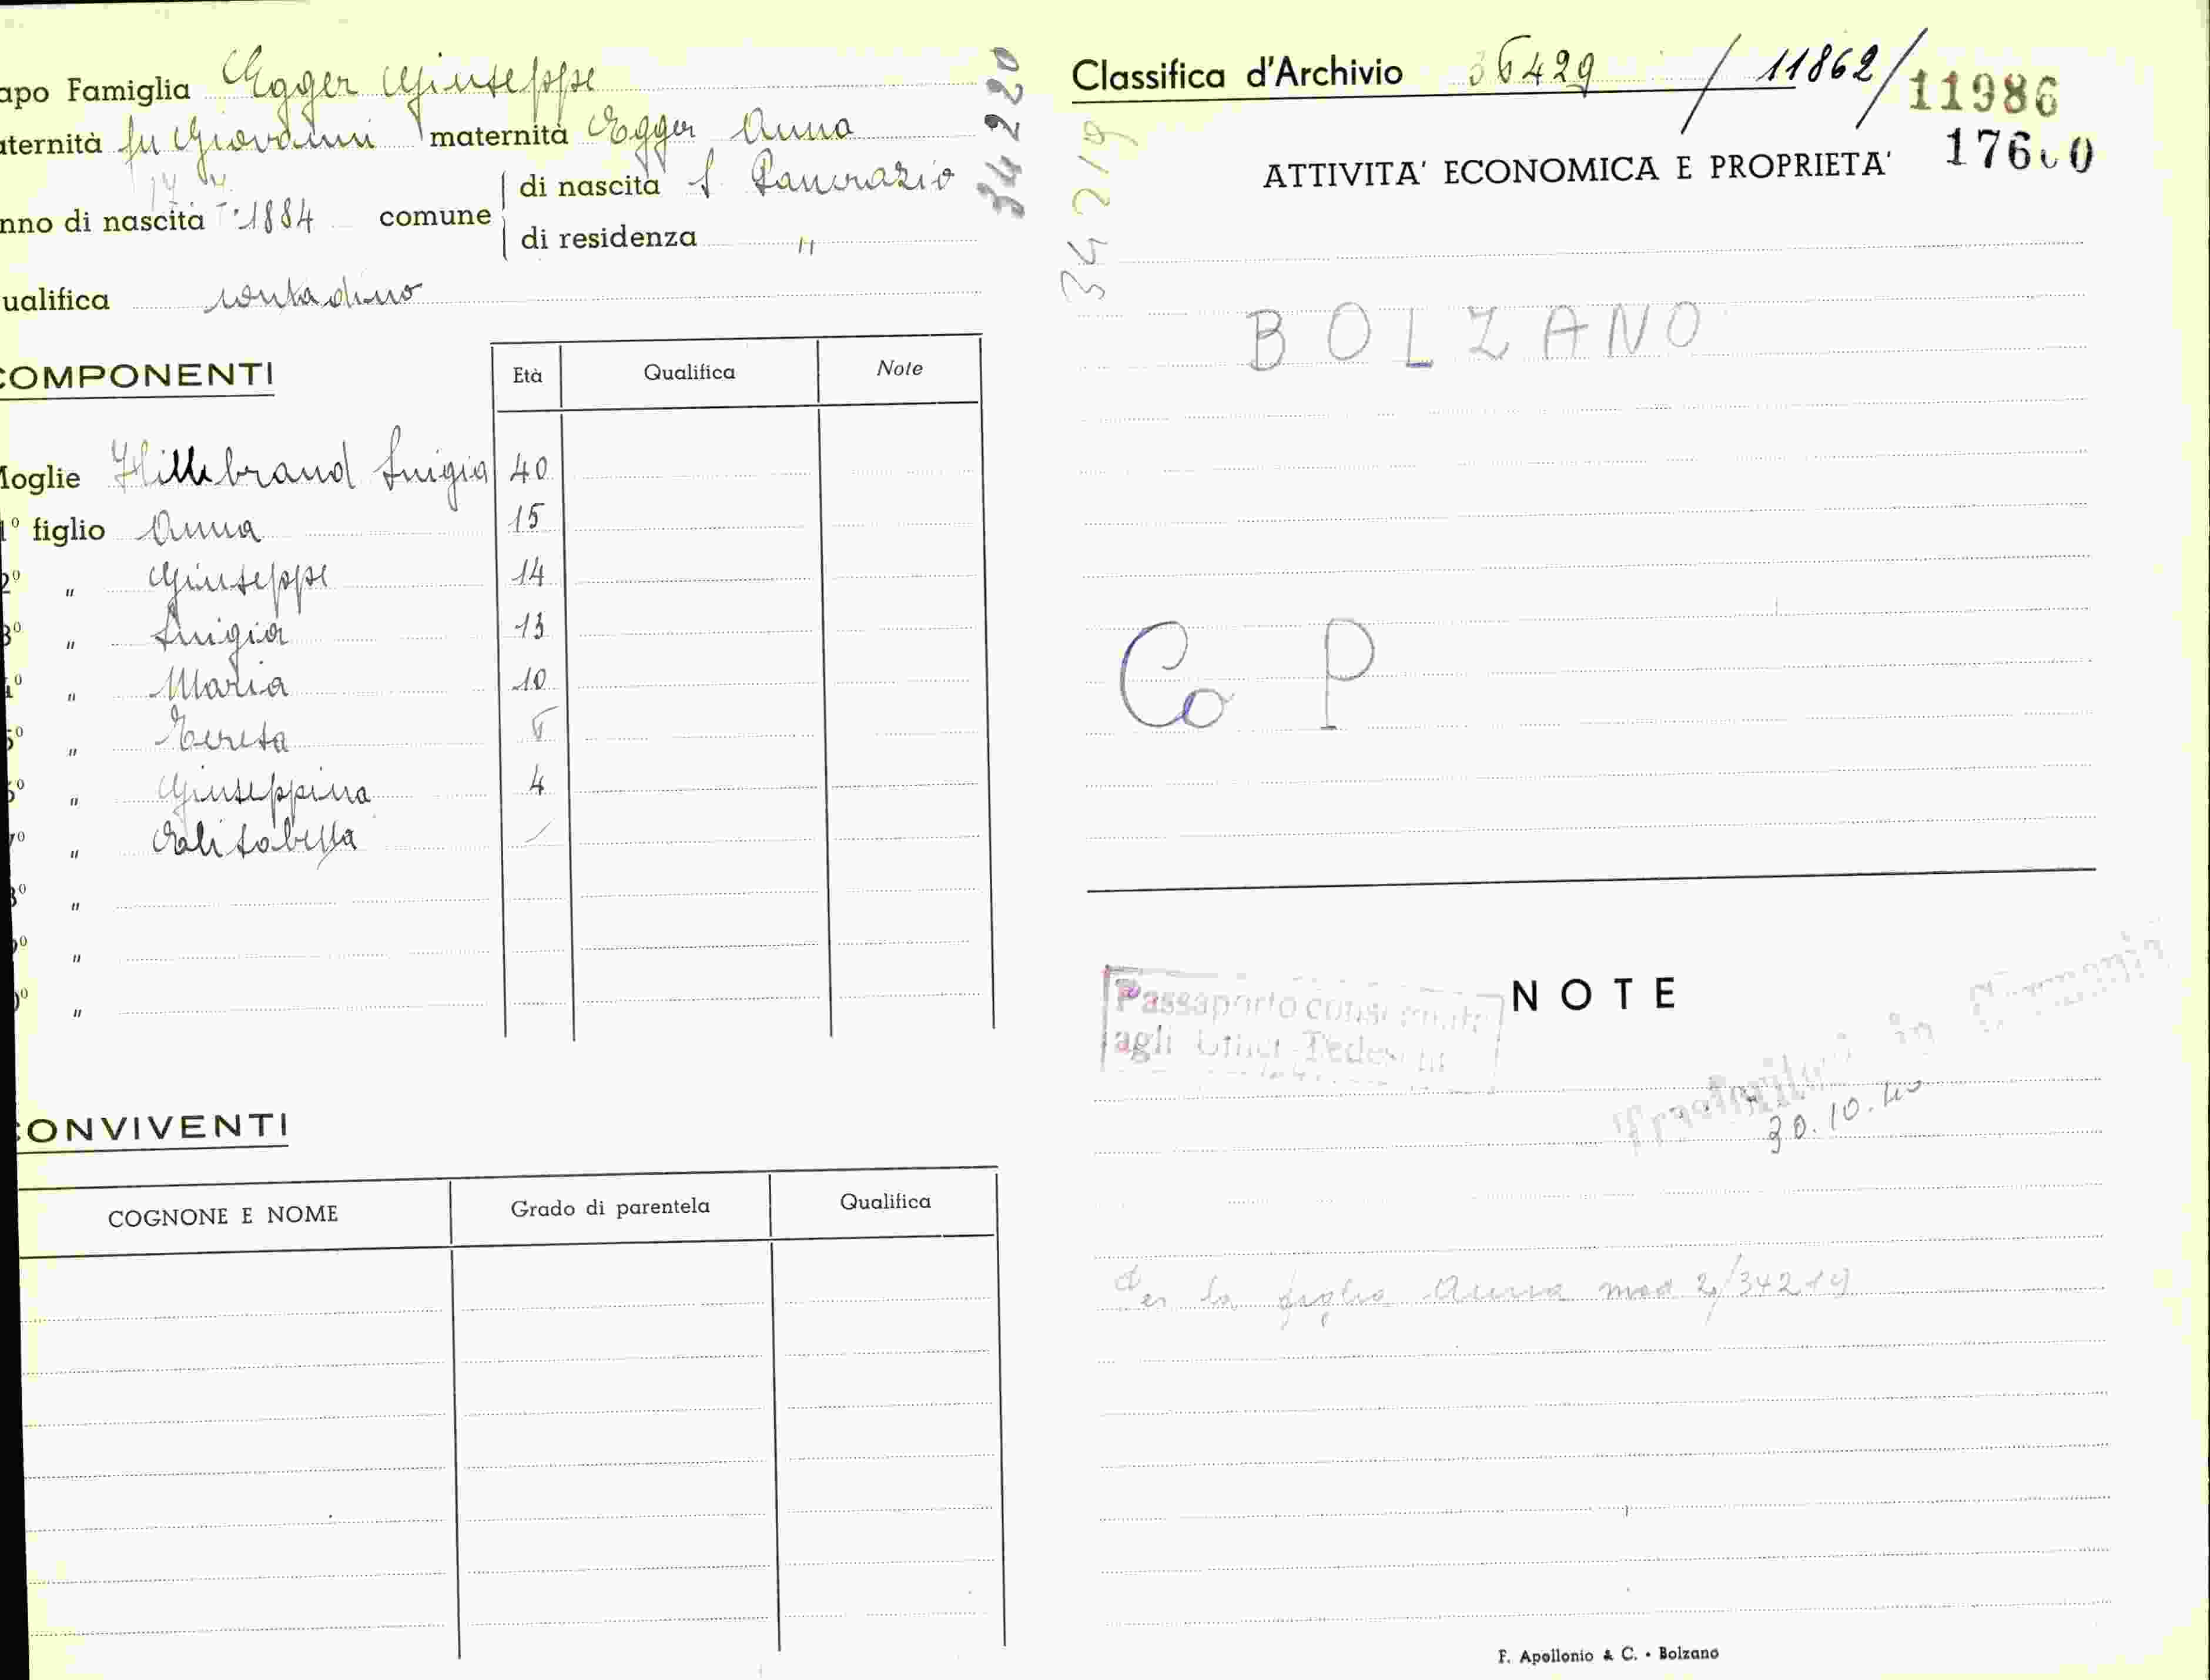 apo Famiglia Egger Giuseppe
aternità fu Giovanni maternità Egger Anna
nno di nascita 1884 comune di nascita S Pancrazio
di residenza "
ualifica contadino
COMPONENTI Età Qualifica Note
Moglie Hillebrand Luigia 40
1° figlio Anna 15
2° " Giuseppe 14
3° " Luigia 13
4° " Maria 10
5° " Teresa
6° " Giuseppina 4
7° " Elisabetta
8° "
9° "
0° "
CONVIVENTI
COGNONE E NOME Grado di parentela Qualifica
34220
34219
Classifica d'Archivio 36429 / 11862 / 11986
17600
ATTIVITA' ECONOMICA E PROPRIETA'
BOLZANO
Co P
NOTE
Passaporto consegnato
agli Uffici Tedeschi
Trasferito in Germania
30.10.40
Per la figlia Anna mod 2/34219
F. Apollonio & C. • Bolzano